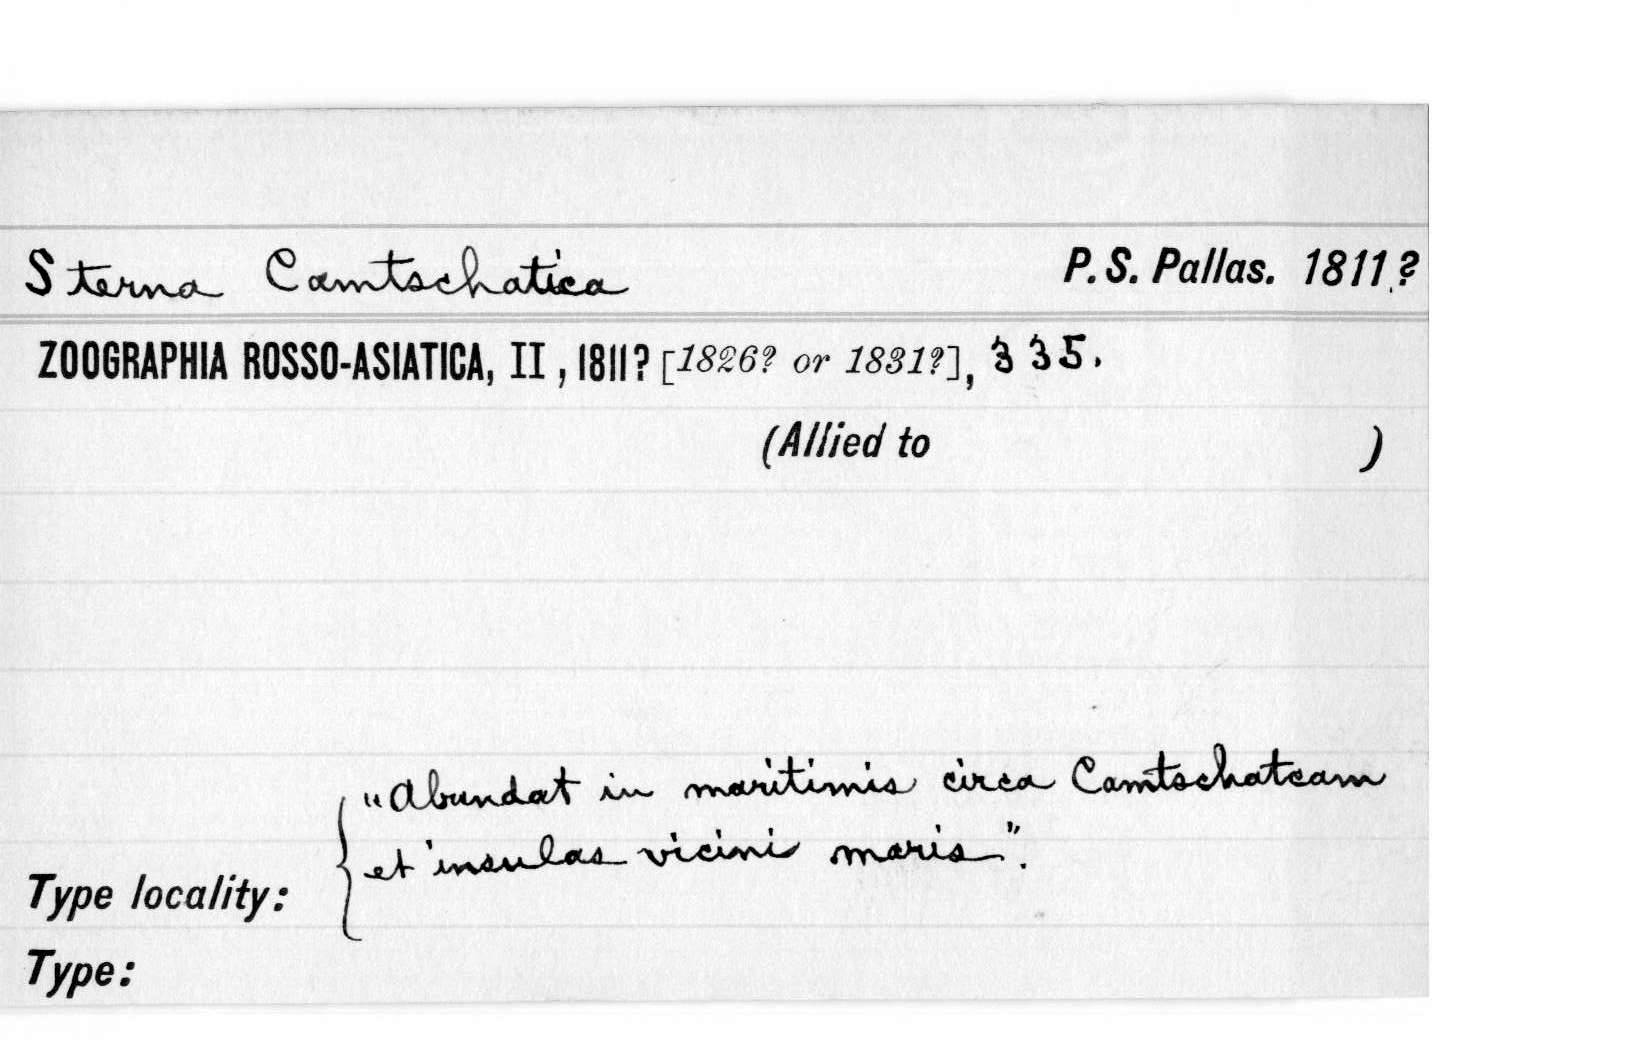 Sterna Camtschatica P. S. Pallas. 1811?
ZOOGRAPHIA ROSSO-ASIATICA, II, 1811? [1826? or 1831?], 335.
(Allied to )
"Abundat in maritimis circa Camtschatcam
et insulas vicini maris".
Type locality:
Type: